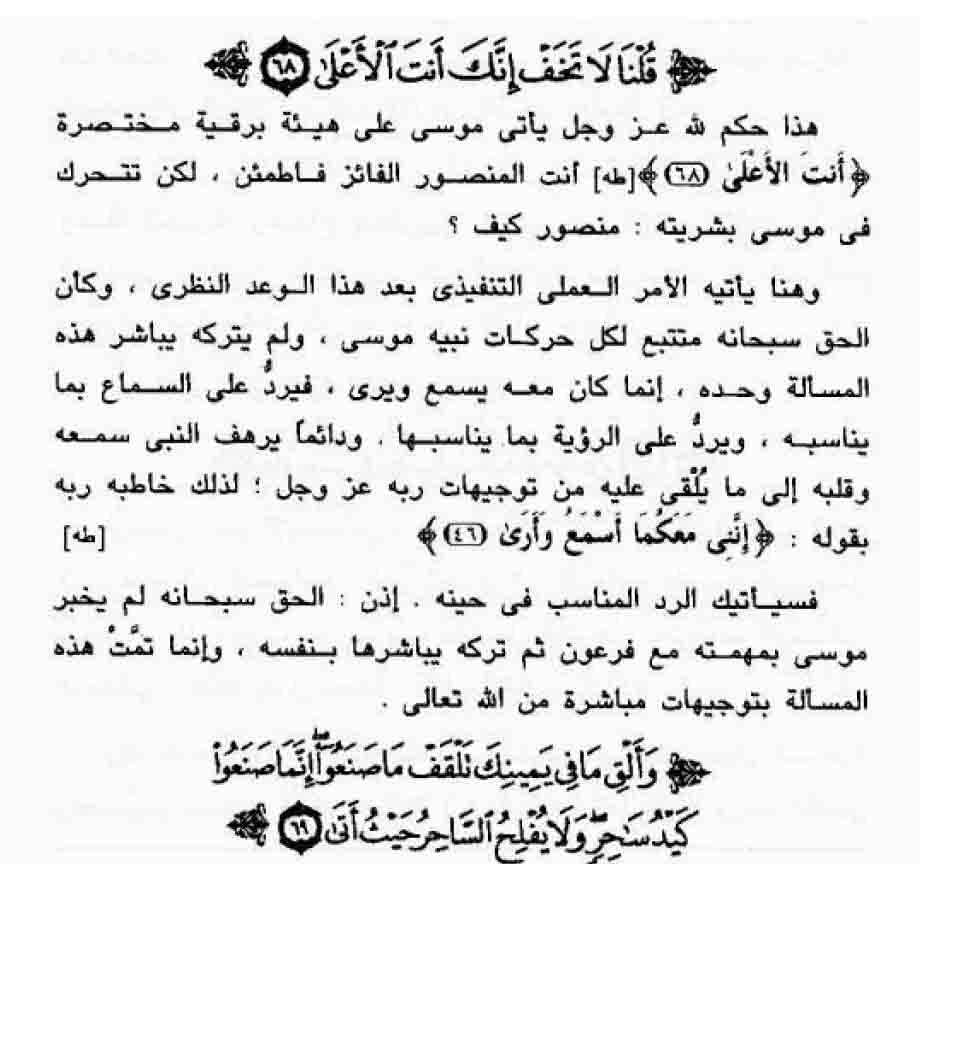 ﴿ قُلْنَا لَا تَخَفْ إِنَّكَ أَنتَ ٱلْأَعْلَىٰ ٦٨ ﴾
هذا حكم لله عز وجل يأتى موسى على هيئة برقية مختصرة
﴿ أَنتَ الأَعْلَىٰ (٦٨) ﴾ [طه] أنت المنصور الفائز فاطمئن ، لكن تتحرك
فى موسى بشريته : منصور كيف ؟
وهنا يأتيه الأمر العملى التنفيذى بعد هذا الوعد النظرى ، وكأن
الحق سبحانه متتبع لكل حركات نبيه موسى ، ولم يتركه يباشر هذه
المسألة وحده ، إنما كان معه يسمع ويرى ، فيردُّ على السماع بما
يناسبه ، ويردُّ على الرؤية بما يناسبها . ودائماً يرهف النبى سمعه
وقلبه إلى ما يُلْقى عليه من توجيهات ربه عز وجل ؛ لذلك خاطبه ربه
بقوله : ﴿ إِنَّنِى مَعَكُمَا أَسْمَعُ وَأَرَىٰ (٤٦) ﴾ [طه]
فسيأتيك الرد المناسب فى حينه . إذن : الحق سبحانه لم يخبر
موسى بمهمته مع فرعون ثم تركه يباشرها بنفسه ، وإنما تمَّتْ هذه
المسألة بتوجيهات مباشرة من الله تعالى .
﴿ وَأَلْقِ مَا فِى يَمِينِكَ تَلْقَفْ مَا صَنَعُوٓاْ ۖ إِنَّمَا صَنَعُواْ
كَيْدُ سَٰحِرٍۢ ۖ وَلَا يُفْلِحُ ٱلسَّاحِرُ حَيْثُ أَتَىٰ ٦٩ ﴾